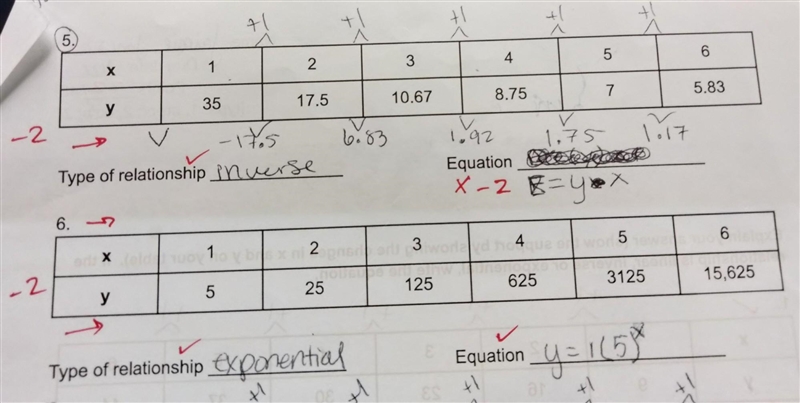 +1 +1 +1 +1 +1
5.
x 1 2 3 4 5 6
y 35 17.5 10.67 8.75 7 5.83
-2 -17.5 6.83 1.92 1.75 1.17
Type of relationship inverse Equation
x -2 = y x
6.
x 1 2 3 4 5 6
-2
y 5 25 125 625 3125 15,625
Type of relationship exponential Equation y = 1(5)^x
+1 +1 +1 +1